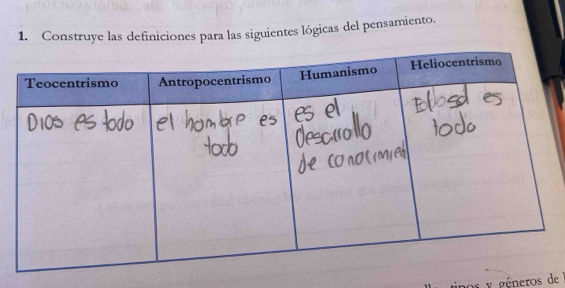 1. Construye las definiciones para las siguientes lógicas del pensamiento.
Teocentrismo Antropocentrismo Humanismo Heliocentrismo
Dios es todo
el hombre es
todo
es el
desarrollo
de conocimied
es
todo
géneros de